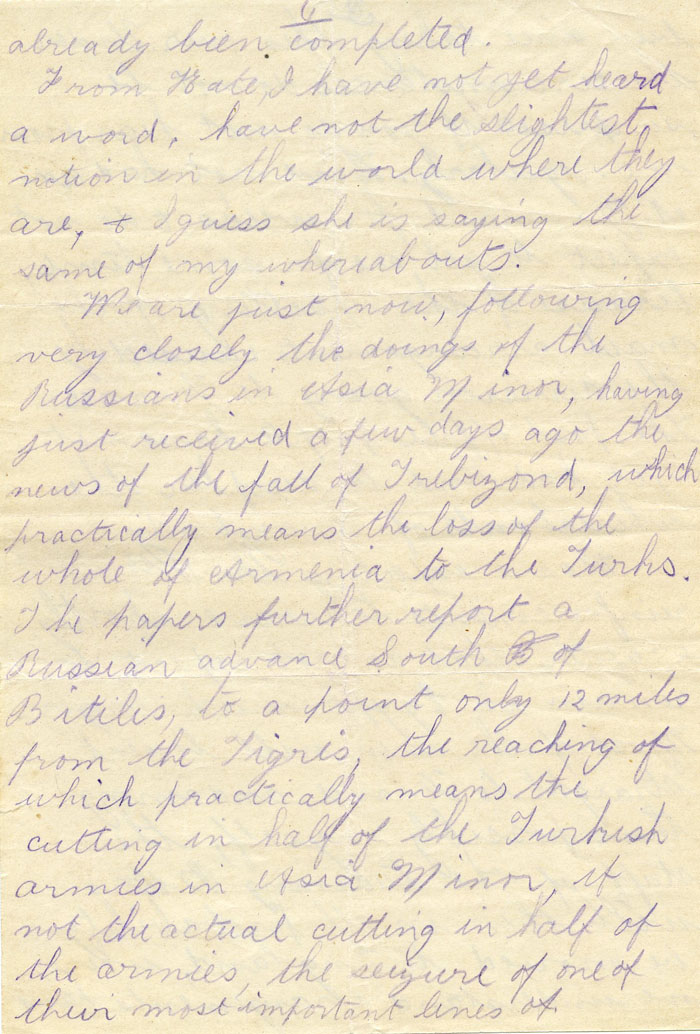 6
already been completed.
From Kate, I have not yet heard
a word, have not the slightest
notion in the world where they
are, & I guess she is saying the
same of my whereabouts.
We are just now, following
very closely the doings of the
Russians in Asia Minor, having
just received a few days ago the
news of the fall of Trebizond, which
practically means the loss of the
whole of Armenia to the Turks.
The papers further report a
Russian advance South of
Bitilis, to a point only 12 miles
from the Tigris, the reaching of
which practically means the
cutting in half of the Turkish
armies in Asia Minor, if
not the actual cutting in half of
the armies, the seizure of one of
their most important lines of